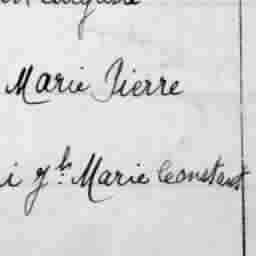 Marie Pierre
i Marie Constant